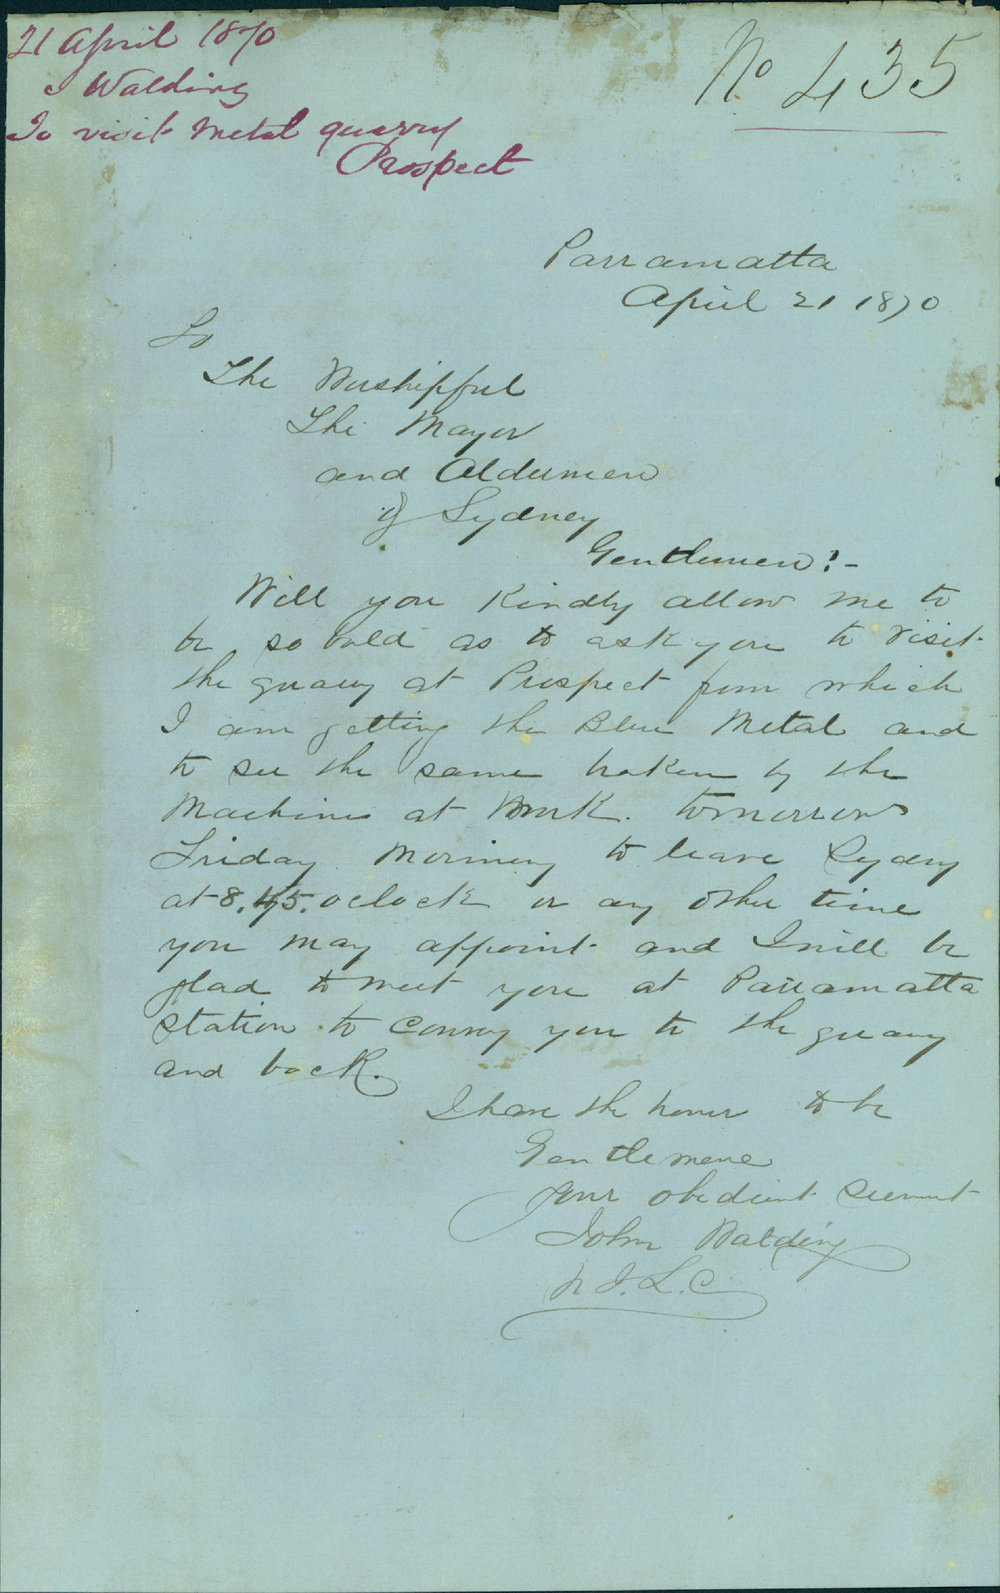 21 April 1870
J Walding
To visit metal quarry
Prospect
No 435
Parramatta
April 21 1870
To
The Worshipful
The Mayor
and Aldermen
of Sydney
Gentlemen! -
Will you Kindly allow me to
be so bold as to ask you to visit
the quarry at Prospect from which
I am getting the Blue Metal and
to see the same broken by the
Machines at Work. tomorrow
Friday Morning to leave Sydney
at 8.45. oclock or any other time
you may appoint and I will be
glad to meet you at Parramatta
Station to convey you to the quarry
and back.
I have the honor to be
Gentlemen
Your obedient Servant
John Walding